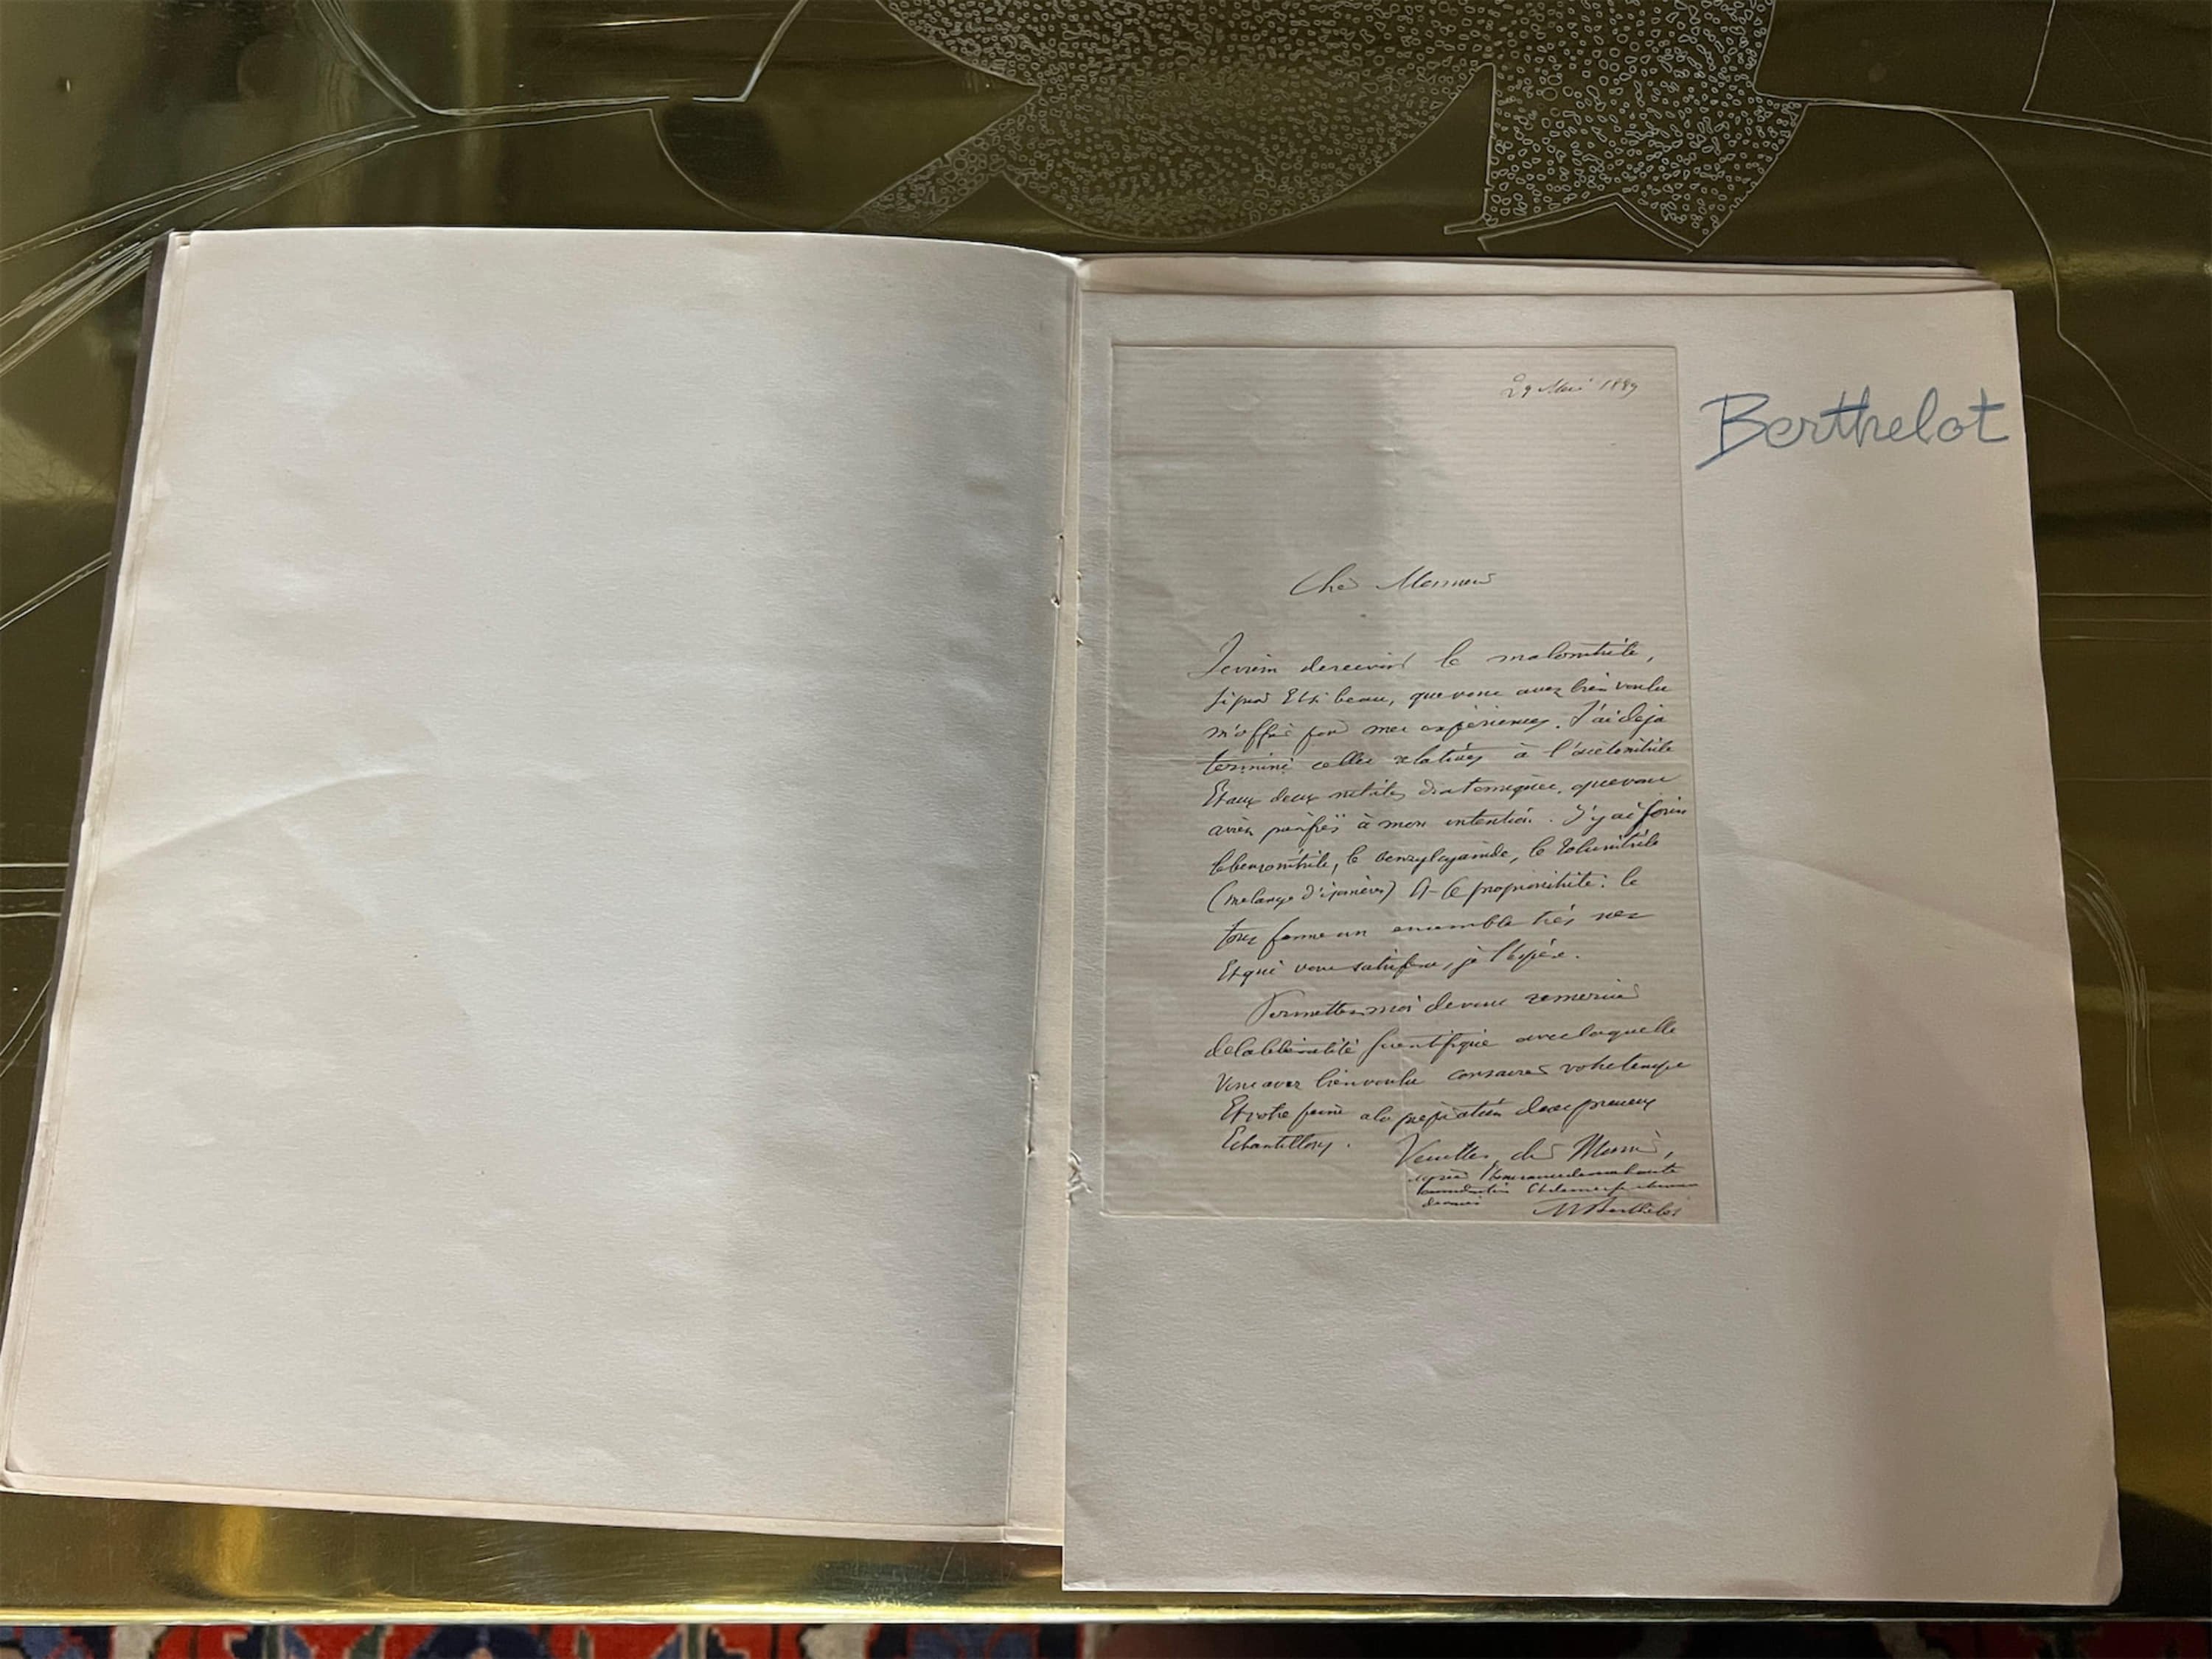 29 Mai 1889
Berthelot
Cher Monsieur
Je viens de recevoir le malonitrile,
si pur et si beau, que vous avez bien voulu
m'offrir pour mes expériences. J'ai déjà
terminé celles relatives à l'acétonitrile
et aux deux nitriles diatomiques, que vous
aviez préparés à mon intention. J'y ai joint
le benzonitrile, le benzylcyanide, le tolunitrile
(mélange d'isomères) et le propionitrile: le
tout forme un ensemble très net
et qui vous satisfera, je l'espère.
Permettez moi de vous remercier
de la libéralité scientifique avec laquelle
vous avez bien voulu consacrer votre temps
et votre peine à la préparation de ces précieux
échantillons.
Veuillez, cher Monsieur,
agréer l'assurance de ma haute
considération et de mes
M Berthelot